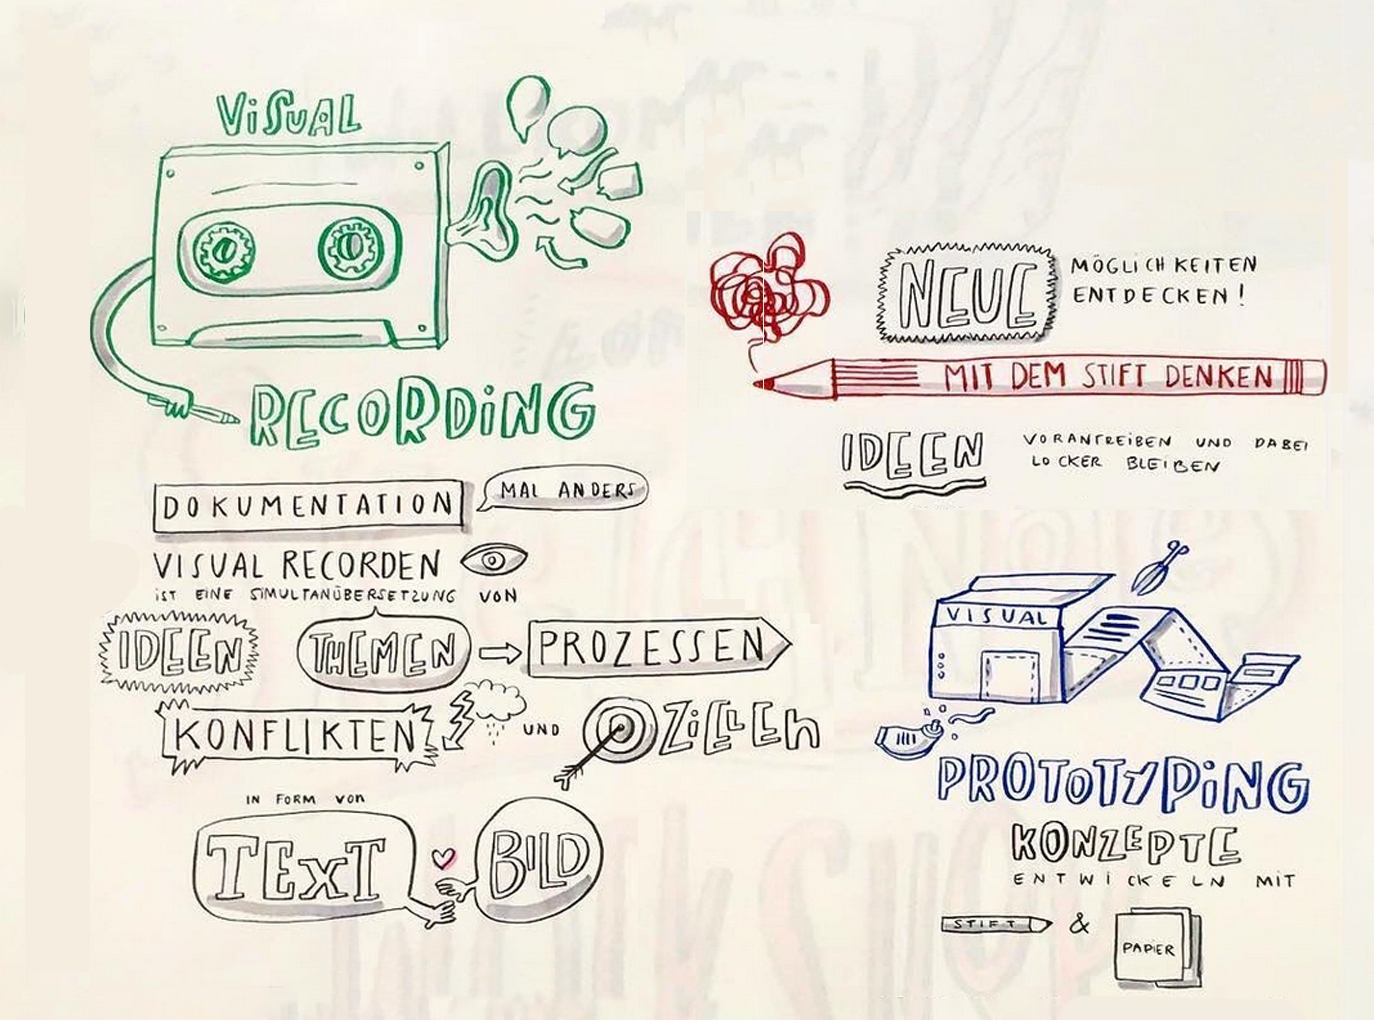 ViSUAL
RECORDiNG
DOKUMENTATION
MAL ANDERS
VISUAL RECORDEN
iST EINE SIMULTANÜBERSETZUNG VON
IDEEN THEMEN PROZESSEN
KONFLIKTEN UND ZiELEn
IN FORM VON
TExT BILD
NEUE MÖGLICHKEITEN
ENTDECKEN!
MIT DEM STIFT DENKEN
IDEEN VORANTREIBEN UND DABEI
LOCKER BLEIBEN
VISUAL
PROTOTYPiNG
KONZEPTE
ENTWICKELN MIT
STIFT & PAPiER